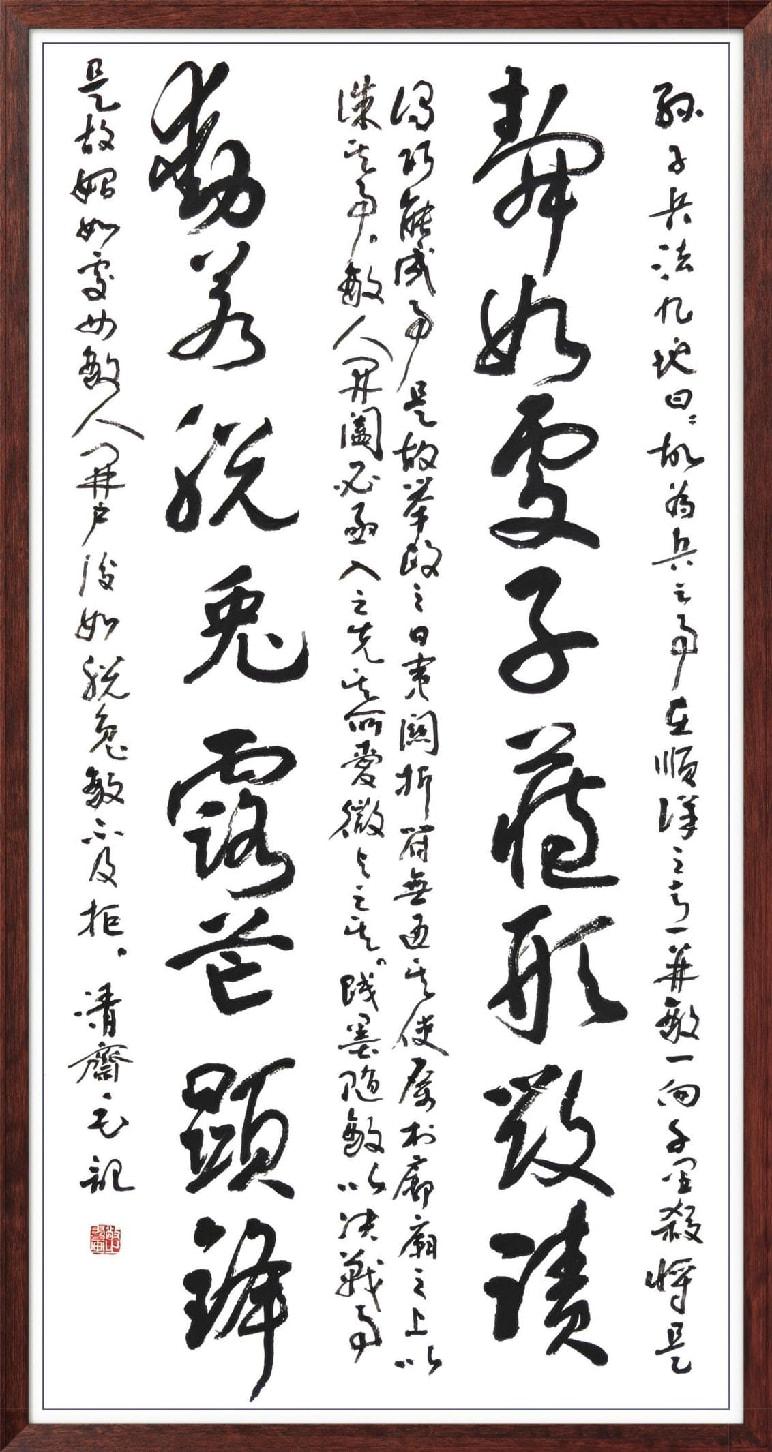 孙子兵法九地曰：故為兵之事在順詳之意一并敵一向千里殺將是
静如處子藏形斂蹟
謂巧能成事是故举政之日夷關折符無通其使厲於廊廟之上以
誅其事。敵人開闔必亟入之先其所愛微与之其。踐墨隨敵以决戰事
動若脱兔露芒顯鋒
是故始如處女敵人開户後如脱兔敵不及拒。清齋毛記